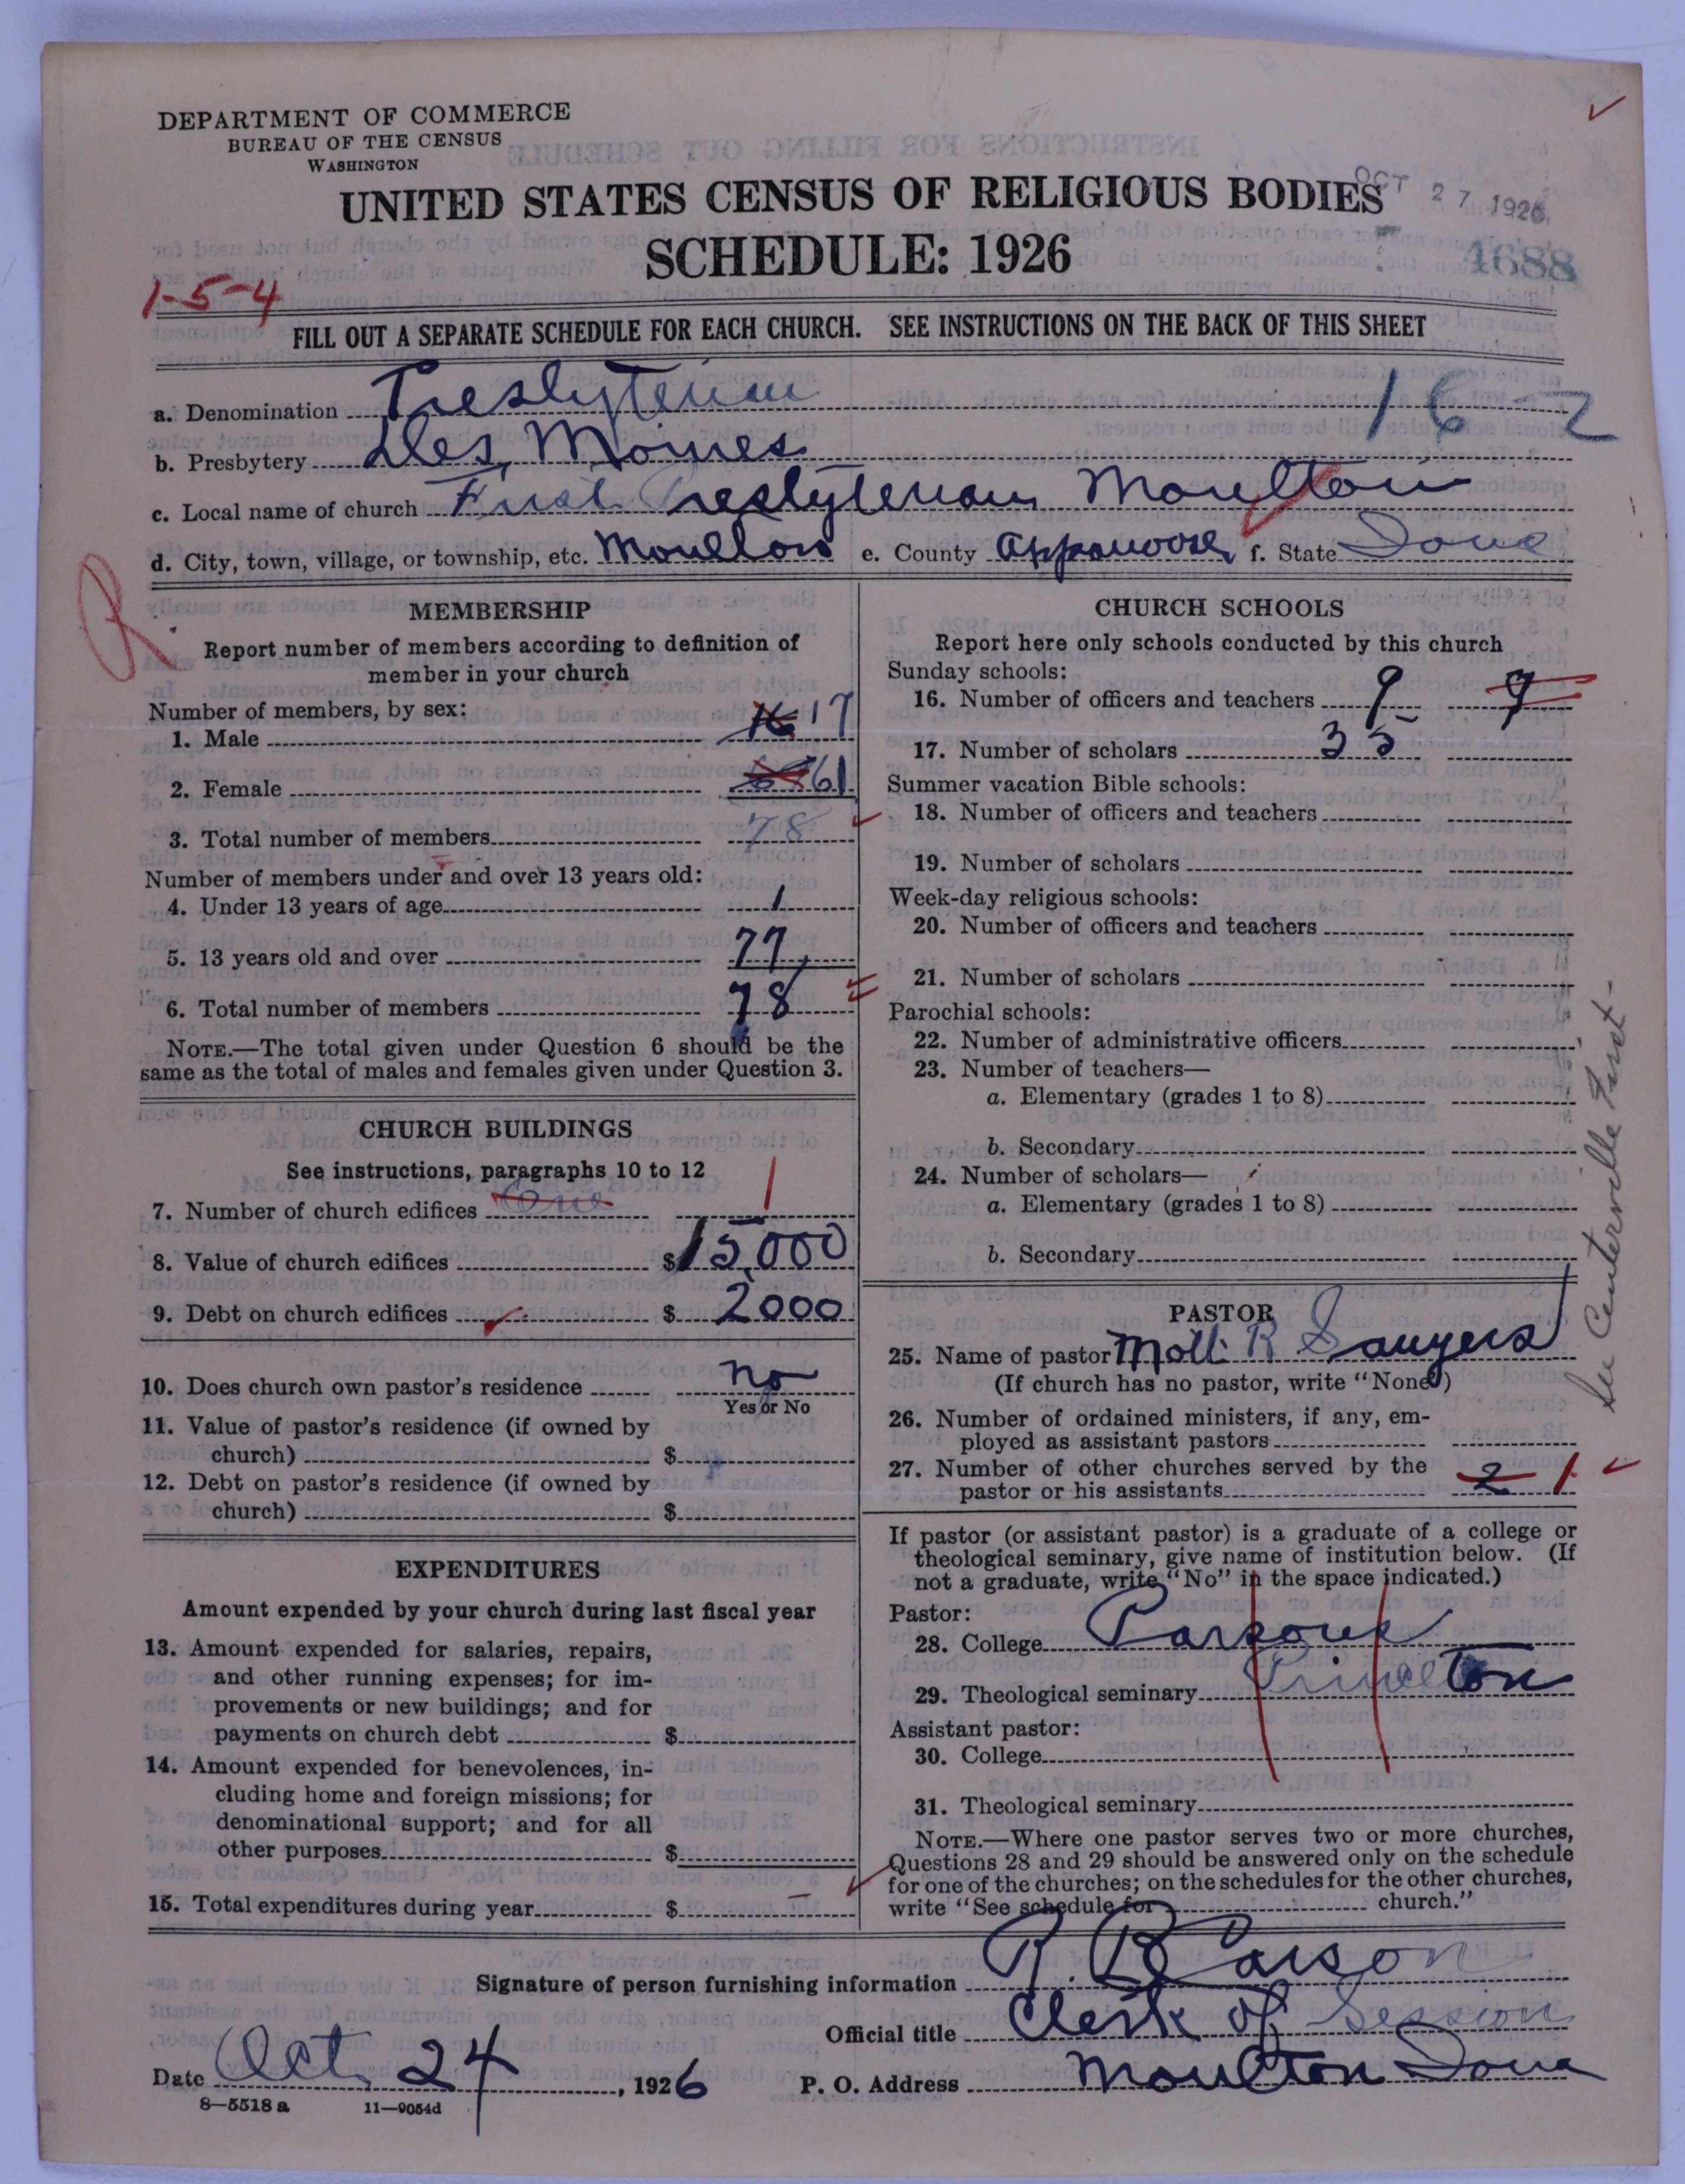 DEPARTMENT OF COMMERCE
BUREAU OF THE CENSUS
WASHINGTON
UNITED STATES CENSUS OF RELIGIOUS BODIES
OCT 27 1926
SCHEDULE: 1926
4688
1-5-4
FILL OUT A SEPARATE SCHEDULE FOR EACH CHURCH. SEE INSTRUCTIONS ON THE BACK OF THIS SHEET
a. Denomination Presbyterian
16-2
b. Presbytery Des Moines
c. Local name of church First Presbyterian Moulton
d. City, town, village, or township, etc. Moulton e. County Appanoose f. State Iowa
R
MEMBERSHIP
Report number of members according to definition of
member in your church
Number of members, by sex:
1. Male 16 17
2. Female 61
3. Total number of members 78
Number of members under and over 13 years old:
4. Under 13 years of age 1
5. 13 years old and over 77
6. Total number of members 78
NOTE.—The total given under Question 6 should be the
same as the total of males and females given under Question 3.
CHURCH BUILDINGS
See instructions, paragraphs 10 to 12
7. Number of church edifices One 1
8. Value of church edifices $ 15,000
9. Debt on church edifices $ 2000
10. Does church own pastor's residence no
Yes or No
11. Value of pastor's residence (if owned by
church) $
12. Debt on pastor's residence (if owned by
church) $
EXPENDITURES
Amount expended by your church during last fiscal year
13. Amount expended for salaries, repairs,
and other running expenses; for im-
provements or new buildings; and for
payments on church debt $
14. Amount expended for benevolences, in-
cluding home and foreign missions; for
denominational support; and for all
other purposes $
15. Total expenditures during year $ –
CHURCH SCHOOLS
Report here only schools conducted by this church
Sunday schools:
16. Number of officers and teachers 9 9
17. Number of scholars 35
Summer vacation Bible schools:
18. Number of officers and teachers
19. Number of scholars
Week-day religious schools:
20. Number of officers and teachers
21. Number of scholars
Parochial schools:
22. Number of administrative officers
23. Number of teachers—
a. Elementary (grades 1 to 8)
b. Secondary
24. Number of scholars—
a. Elementary (grades 1 to 8)
b. Secondary
See Centerville First-
PASTOR
25. Name of pastor Mott R Sawyers
(If church has no pastor, write "None")
26. Number of ordained ministers, if any, em-
ployed as assistant pastors
27. Number of other churches served by the
pastor or his assistants 2 1
If pastor (or assistant pastor) is a graduate of a college or
theological seminary, give name of institution below. (If
not a graduate, write "No" in the space indicated.)
Pastor:
28. College Parsons
29. Theological seminary Princeton
Assistant pastor:
30. College
31. Theological seminary
NOTE.—Where one pastor serves two or more churches,
Questions 28 and 29 should be answered only on the schedule
for one of the churches; on the schedules for the other churches,
write "See schedule for church."
Signature of person furnishing information R. B. Carson
Official title Clerk of Session
Date Oct 24, 1926 P. O. Address Moulton Iowa
8—5518 a 11—9054d